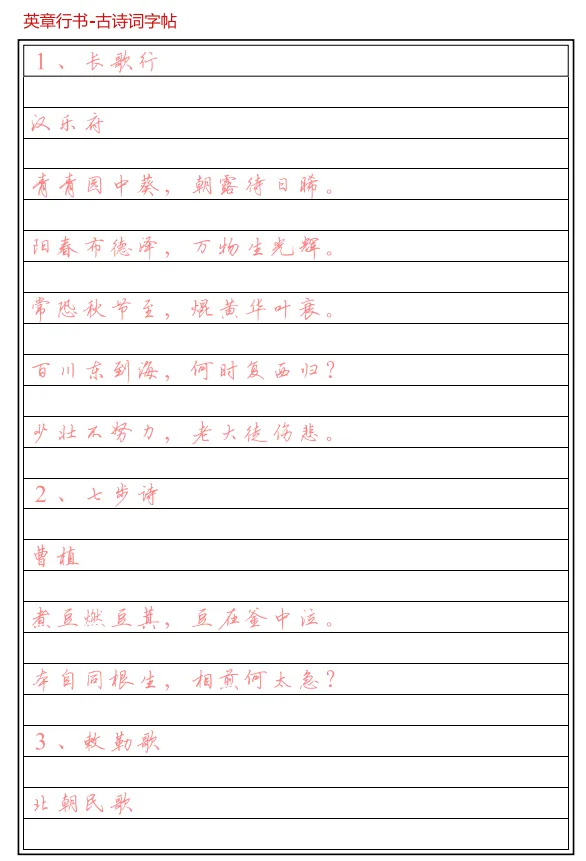 英章行书-古诗词字帖
1、长歌行
汉乐府
青青园中葵，朝露待日晞。
阳春布德泽，万物生光辉。
常恐秋节至，焜黄华叶衰。
百川东到海，何时复西归？
少壮不努力，老大徒伤悲。
2、七步诗
曹植
煮豆燃豆萁，豆在釜中泣。
本自同根生，相煎何太急？
3、敕勒歌
北朝民歌